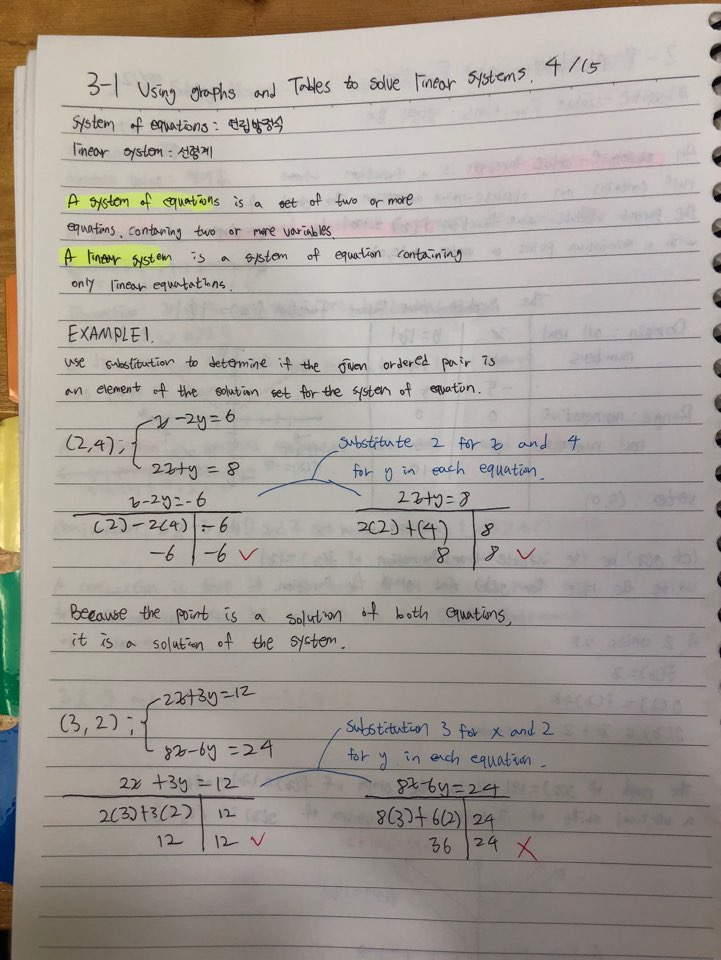 3-1 Using graphs and Tables to solve linear systems. 4/15
System of equations : 연립방정식
linear system : 선형계
A system of equations is a set of two or more
equations. containing two or more variables.
A linear system is a system of equation containing
only linear equatations.
EXAMPLE1.
use substitution to determine if the given ordered pair is
an element of the solution set for the system of equation.
x-2y=6
(2,4);
2x+y = 8
substitute 2 for x and 4
for y in each equation.
x-2y=-6 2x+y=8
(2)-2(4) -6 2(2)+(4) 8
-6 -6 ✓ 8 8 ✓
Because the point is a solution of both equations,
it is a solution of the system.
2x+3y=12
(3,2);
8x-6y=24
substitution 3 for x and 2
for y in each equation.
2x+3y=12 8x-6y=24
2(3)+3(2) 12 8(3)+6(2) 24
12 12 ✓ 36 24 X